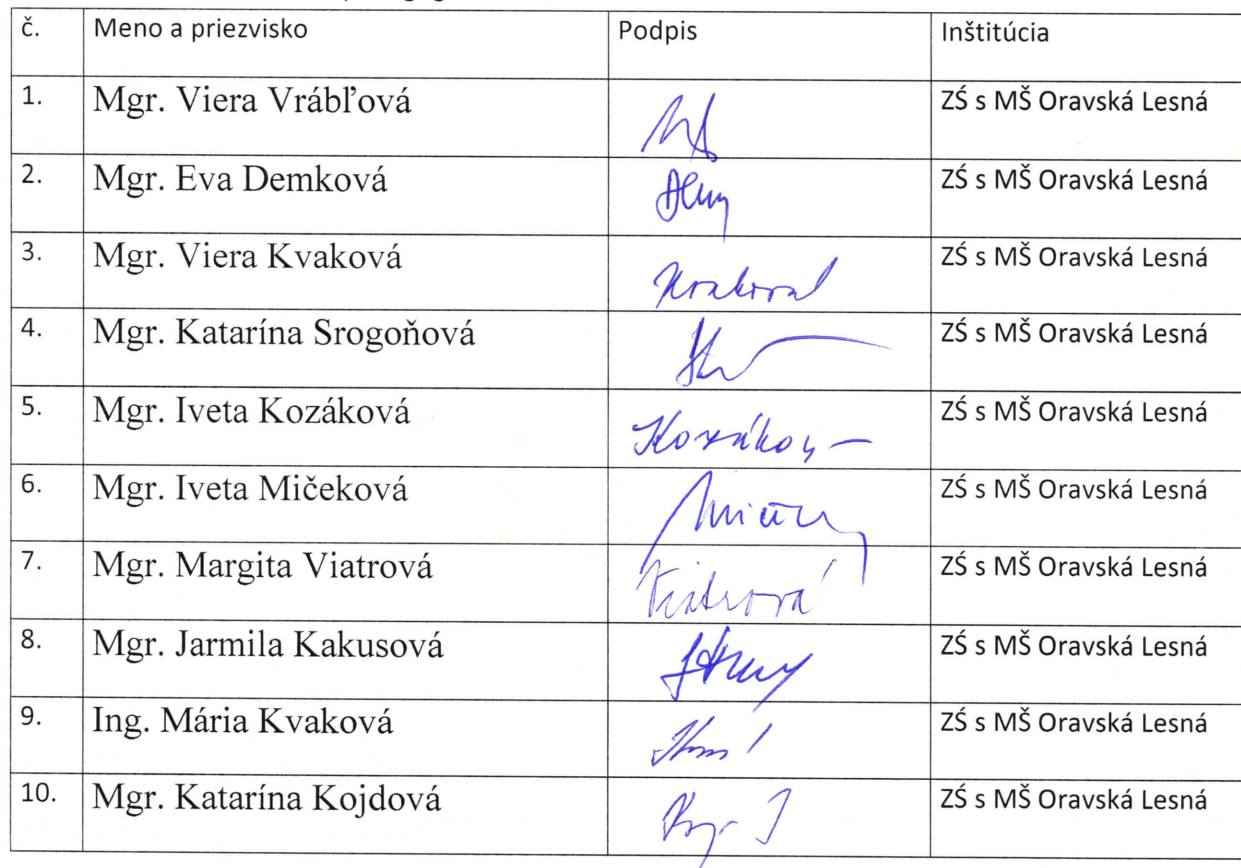 č. Meno a priezvisko Podpis Inštitúcia
1. Mgr. Viera Vrábľová ZŚ s MŠ Oravská Lesná
2. Mgr. Eva Demková ZŚ s MŠ Oravská Lesná
3. Mgr. Viera Kvaková ZŚ s MŠ Oravská Lesná
4. Mgr. Katarína Srogoňová ZŚ s MŠ Oravská Lesná
5. Mgr. Iveta Kozáková ZŚ s MŠ Oravská Lesná
6. Mgr. Iveta Mičeková ZŚ s MŠ Oravská Lesná
7. Mgr. Margita Viatrová Viatrová ZŚ s MŠ Oravská Lesná
8. Mgr. Jarmila Kakusová ZŚ s MŠ Oravská Lesná
9. Ing. Mária Kvaková ZŚ s MŠ Oravská Lesná
10. Mgr. Katarína Kojdová ZŚ s MŠ Oravská Lesná